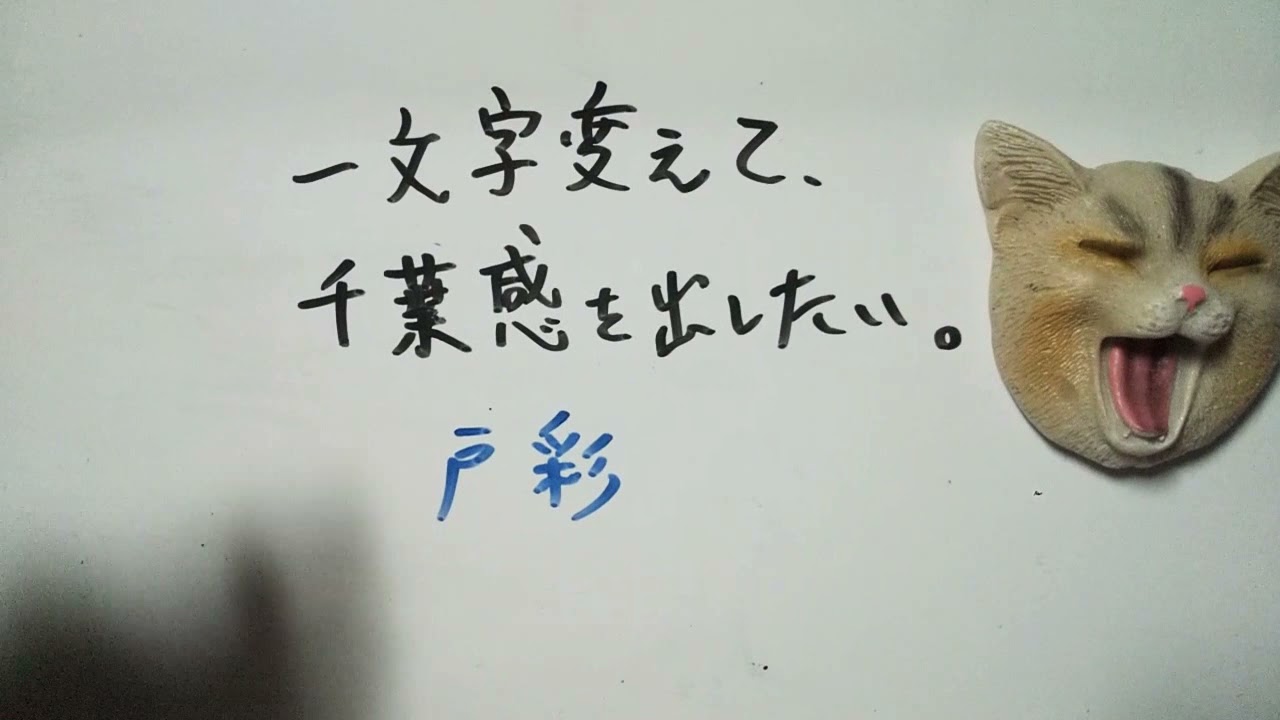 一文字変えて、
千葉感を出したい。
戸彩